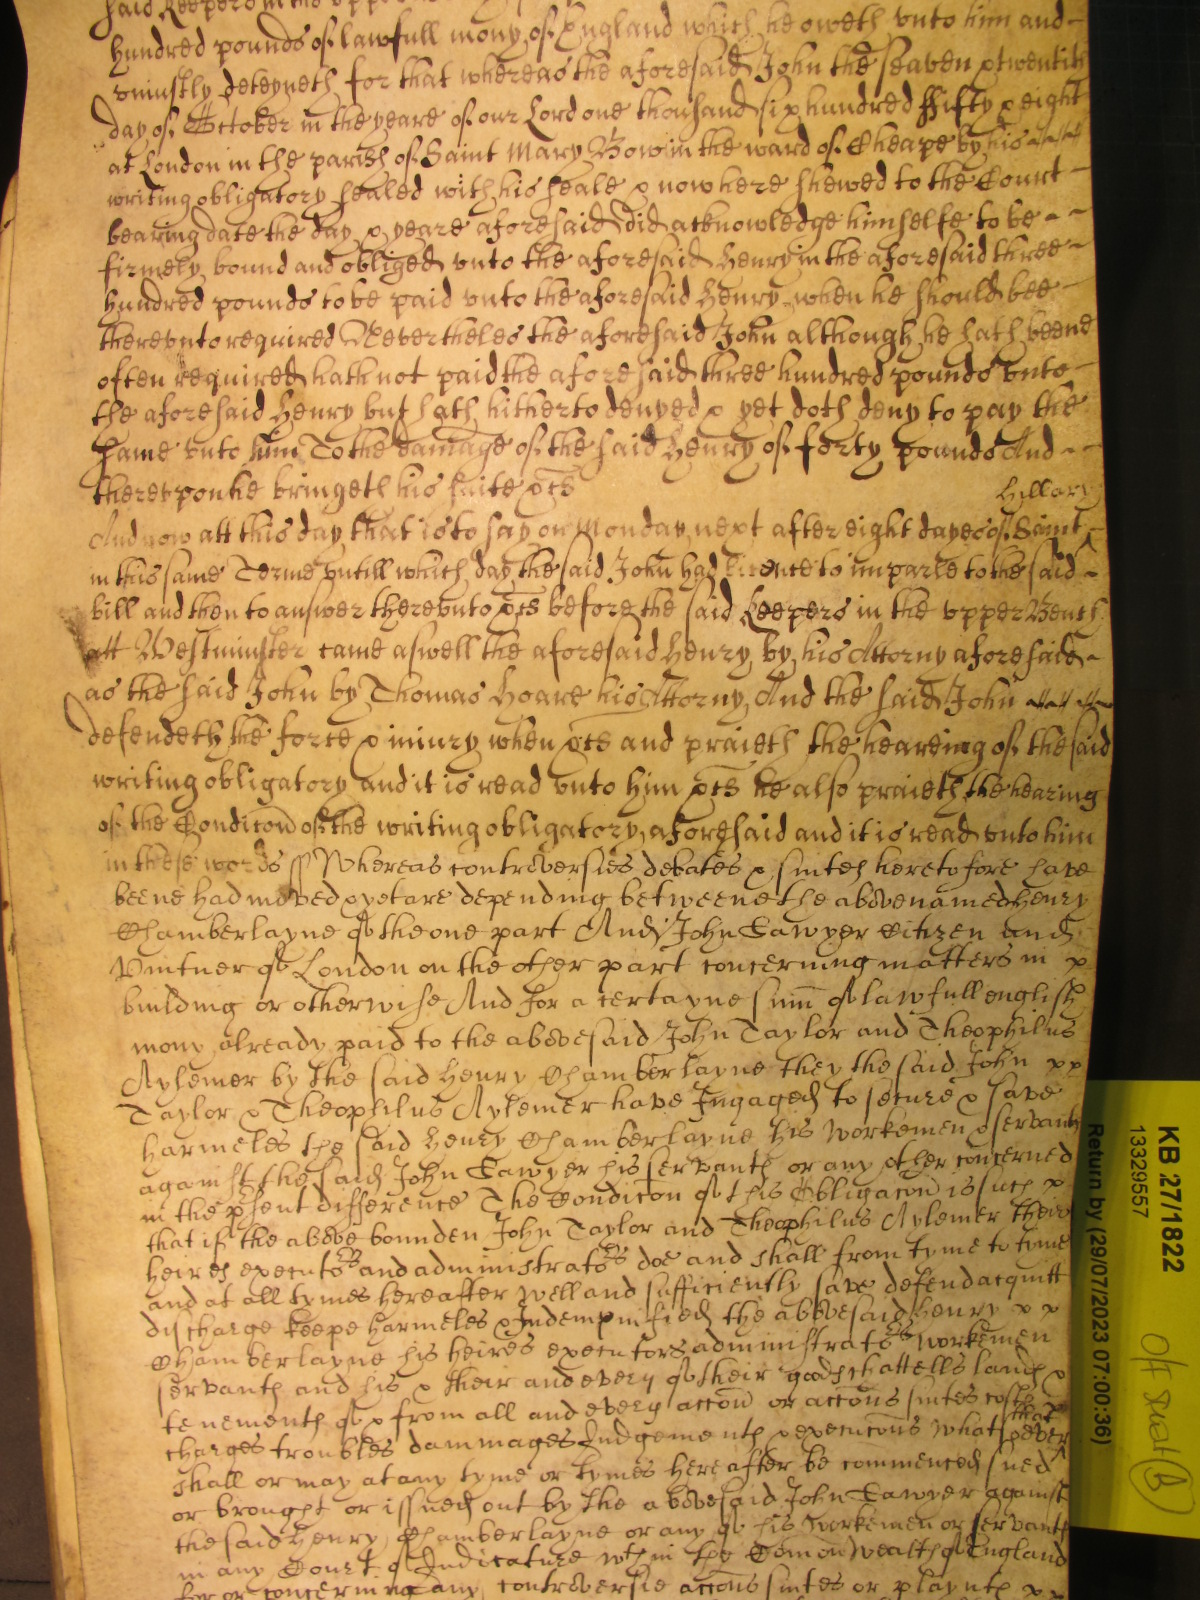 said Keepers in the upper
hundred pounds of lawfull mony of England which he oweth vnto him and
vniustly deteyneth for that whereas the aforesaid John the seaven & twentith
day of October in the yeare of our Lord one thousand six hundred ffifty & eight
at London in the parish of Saint Mary Bow in the ward of Cheape by his
writing obligatory sealed with his seale & now here shewed to the Court
bearing date the day & yeare aforesaid did acknowledge himselfe to be
firmely bound and obliged vnto the aforesaid Henry in the aforesaid three
hundred pounds to be paid vnto the aforesaid Henry when he should bee
therevnto required Neverthelesthe aforesaid John although he hath beene
often required hath not paid the aforesaid three hundred pounds vnto
the aforesaid Henry but hath hitherto denyed & yet doth deny to pay the
same vnto him To the damage of the said Henry of forty pounds And
therevpon he bringeth his suite &cs
Hillary
And now att this day that is to say on Monday next after eight dayes of Saint ^
in this same Terme vntill which day the said John had licence to imparle to the said
bill and then to answer therevnto &cs before the said Keepers in the vpper Bench
att Westminster came aswell the aforesaid Henry by his Attorny aforesaid
as the said John by Thomas Hoare his Attorny And the said John
defendeth the force & iniury when &cs and praieth the heareing of the said
writing obligatory and it is read vnto him &cs he also praieth the hearing
of the Condicon of the writing obligatory aforesaid and it is read vnto him
in these words ss Whereas controversies debates & suites heretofore have
beene had moved & yet are depending betweene the abovenamed Henry
Chamberlayne of the one part And John Sawyer Citizen and
Vintner of London on the other part concerning matters in
building or otherwise And for a certayne sum of lawfull english
mony already paid to the abovesaid John Taylor and Theophilus
Aylemer by the said Henry Chamberlayne they the said John
Taylor & Theophilus Aylemer have Ingaged to secure & save
harmeles the said Henry Chamberlayne his workemen & servants
against the said John Sawyer his servants or any other concerned
in the psent difference The Condicon of this Obligacon is such
that if the above bounden John Taylor and Theophilus Aylemer their
heires executors and administrators doe and shall from tyme to tyme
and at all tymes hereafter well and sufficiently save defend acquitt
discharge keepe harmeles & Indempnified the abovesaid Henry
Chamberlayne his heires executors administrators workemen
servants and his & their and every of their goods chattells lands
tenements of & from all and every accon or accons suites costs
charges troubles dammages Iudgements & execucons whatsoever that
shall or may at any tyme or tymes hereafter be commenced sued ^
or brought or issued out by the abovesaid John Sawyer against
the said Henry Chamberlayne or any of his workemen or servants
in any Court of Iudicature wthin the Comonwealth of England
for or concerning any controversie accons suites or playnts
KB 27/1822
13329557
Return by (29/07/2023 07:00:36)